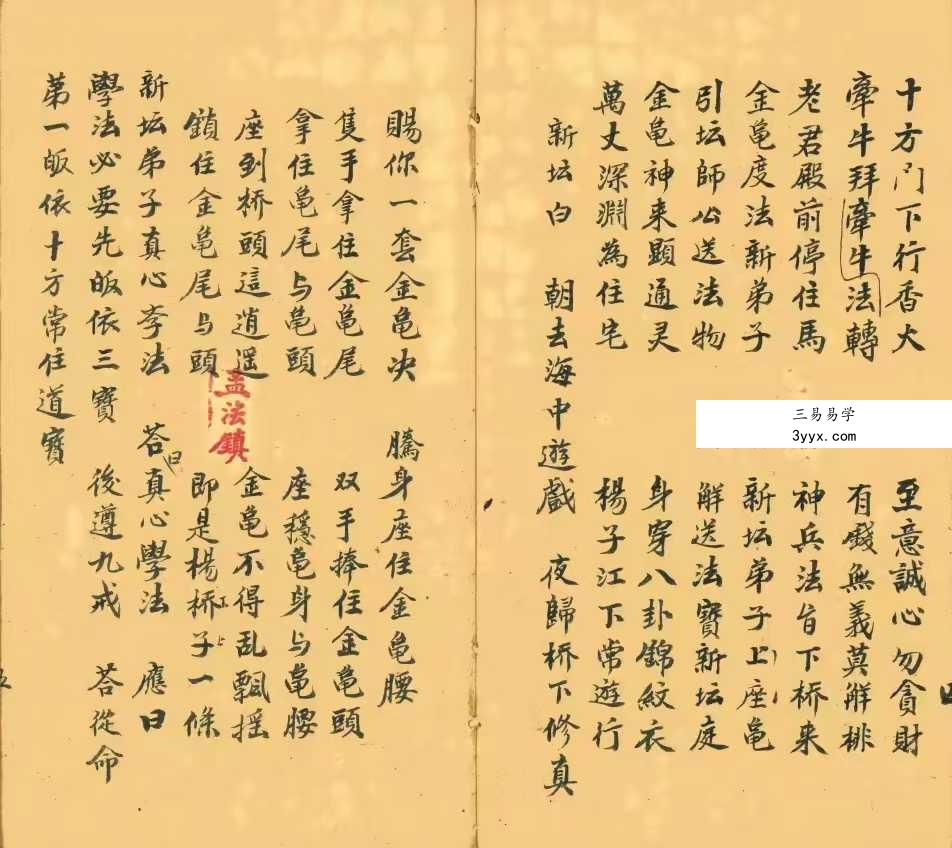 十方门下行香火 至意誠心勿貪財
牽牛拜牽牛法轉 有錢無義莫解排
老君殿前停住馬 神兵法旨下桥来
金亀度法新弟子 新坛弟子上座亀
引坛師公送法物 解送法寶新坛庭
金亀神来顕通灵 身穿八卦錦紋衣
萬丈深淵為住宅 楊子江下常遊行
新坛白 朝去海中遊戯 夜歸桥下修真
賜你一套金亀决 騰身座住金亀腰
隻手拿住金亀尾 双手捧住金亀頭
拿住亀尾与亀頭 座穩亀身与亀腰
座到桥頭這逍遥 金亀不得乱飄摇
鎖住金亀尾与頭 即是楊桥子一條
江上
新坛弟子真心李法 荅曰真心學法 應曰
學法必要先皈依三寶 後遵九戒 荅從命
第一皈依十方常住道寶
孟法鎮
三易易学
3yyx.com